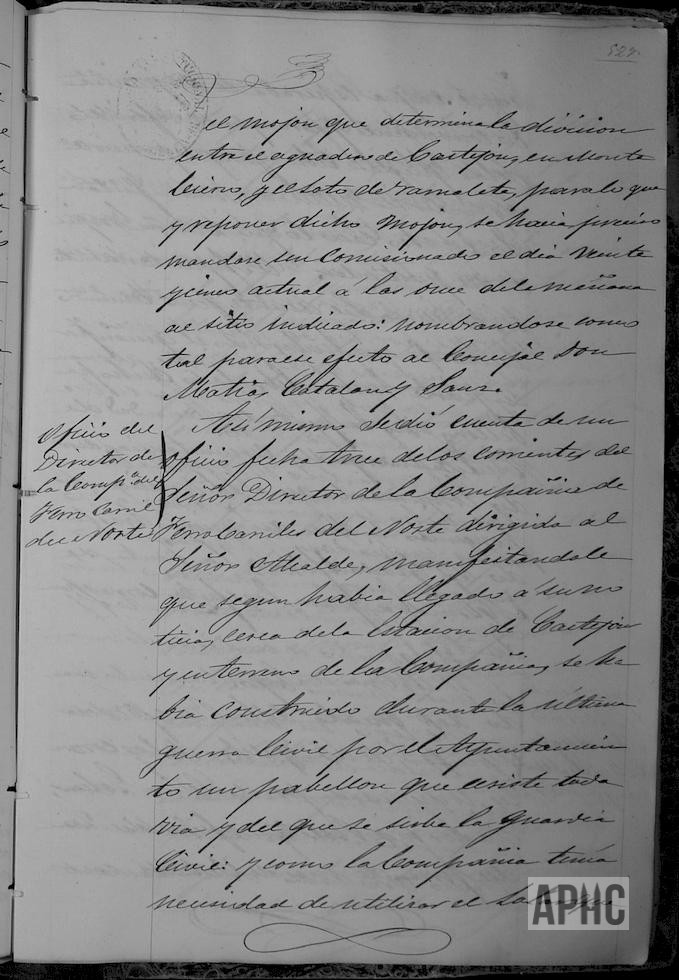 527.
el mojon que determina la division
entre el aguadero de Castejon, en Monte
Cierzo, y el Soto de ramalete, para lo que
y reponer dicho Mojon, se hacia preciso
mandase un Comisionado el dia veinte
y cinco actual á las once de la mañana
al sitio indicado: nombrandose como
tal para ese efecto al Concejal Don
Matias Catalan y Sanz.
Oficio del
Director de
la Comp.ª de
Ferro Carril
del Norte
Asimismo se dió cuenta de un
oficio fecha trece de los corrientes del
Señor Director de la Compañia de
Ferro Carriles del Norte dirigido al
Señor Alcalde, manifestandole
que segun habia llegado á su no
ticia, cerca de la Estacion de Castejon
y en terreno de la Compañia, se ha
bia construido durante la última
guerra Civil por el Ayuntamien
to un pabellon que existe toda
via y del que se sirbe la Guardia
Civil: y como la Compañia tenia
necesidad de utilizar el
APHC